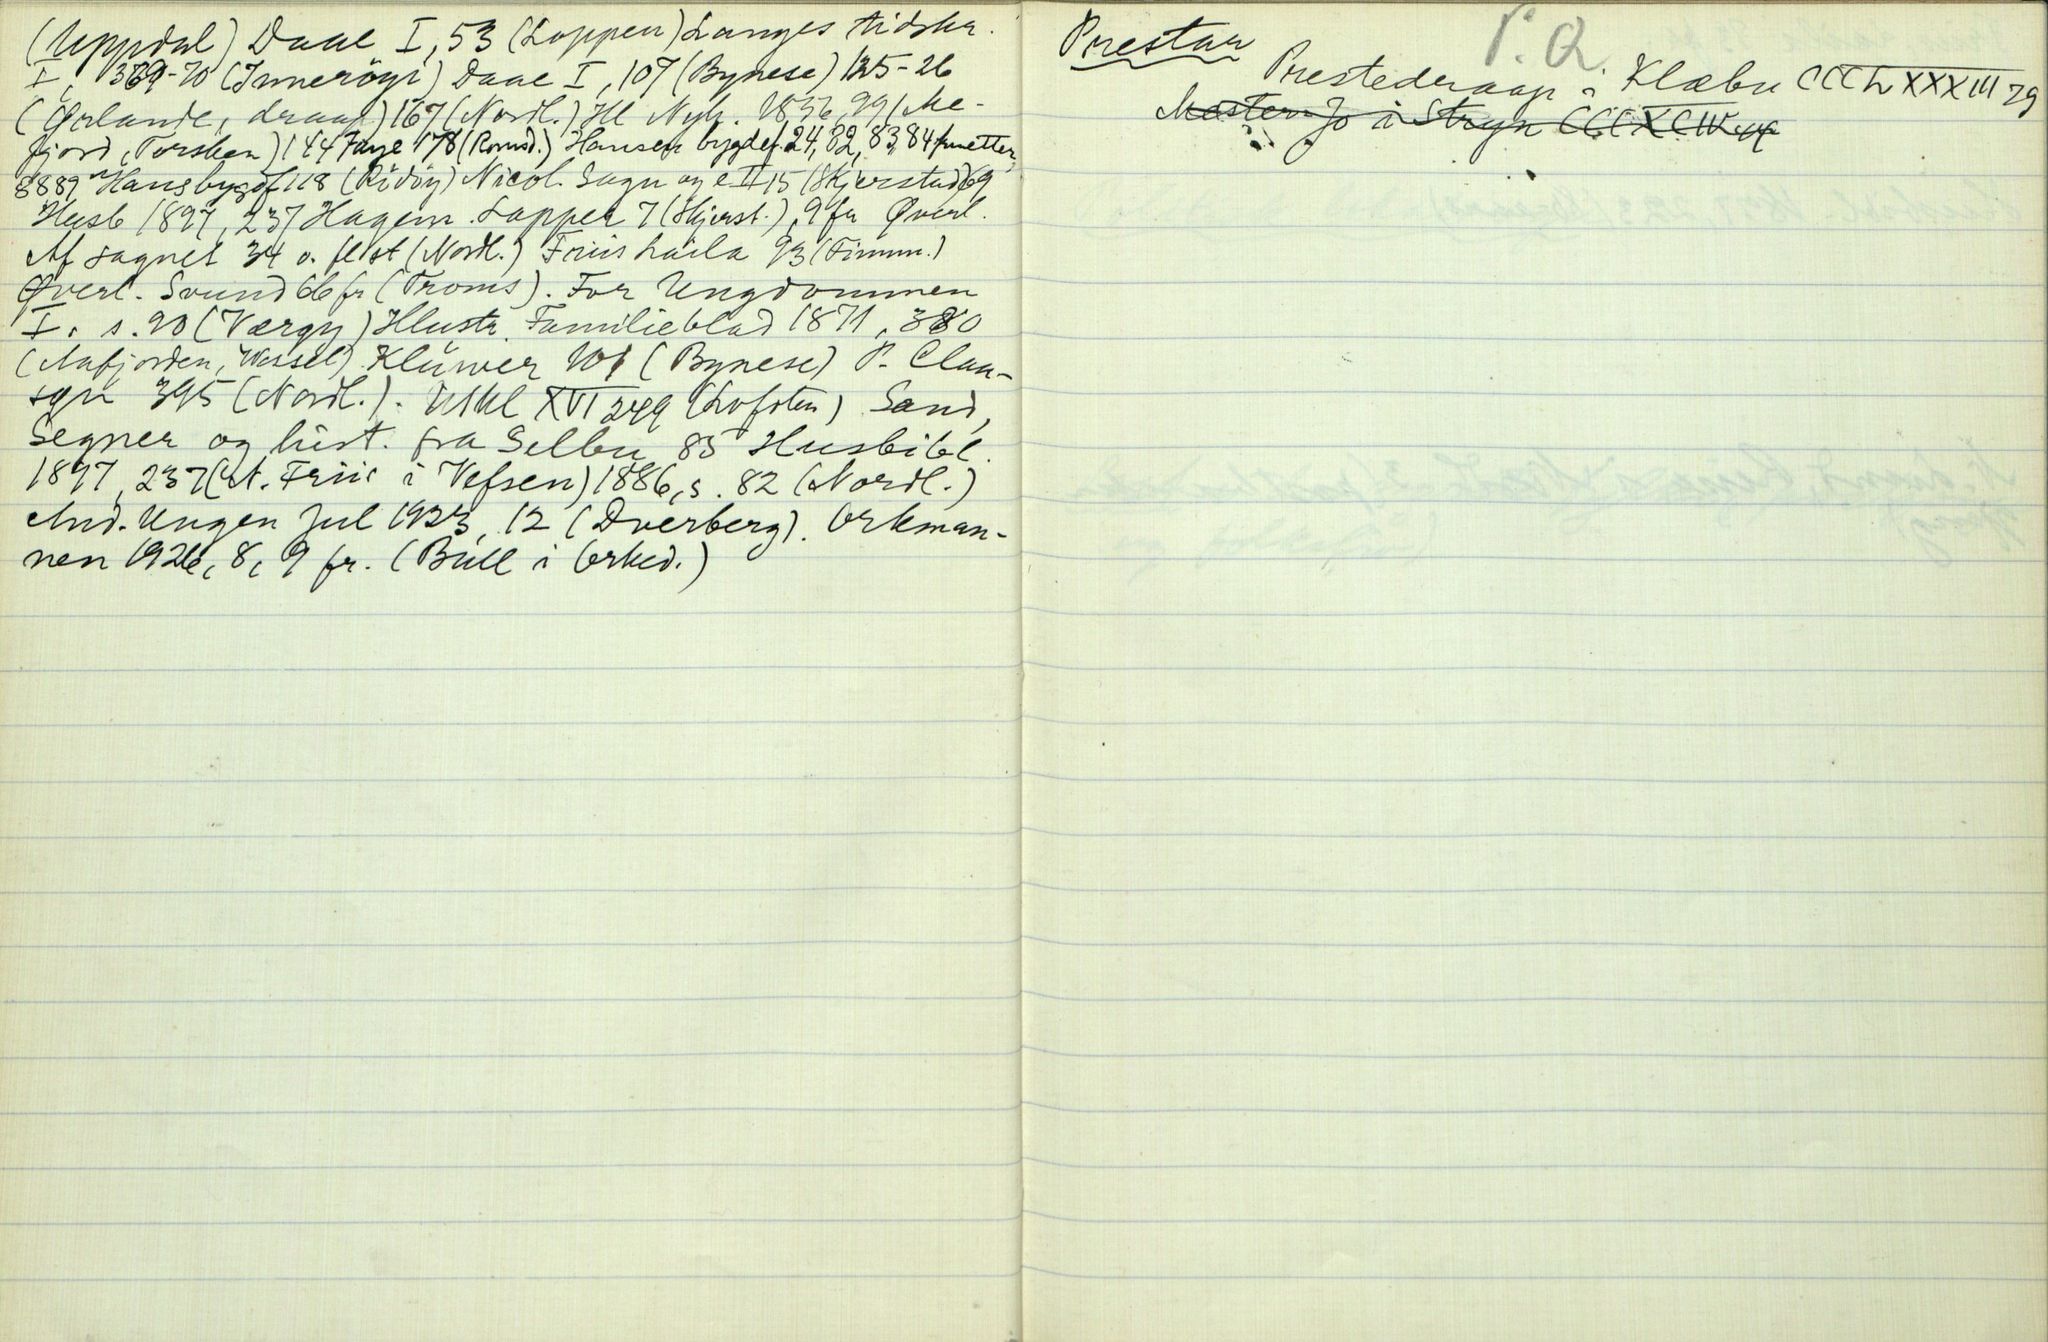 (Uppdal) Daae I, 53 (Loppen) Langes tidskr.
I, 369-70 (Inneröya) Daae I, 107 (Bynese) 125-26
(Ørlande, draap) 167 (Nordl.) Ill Nyh. 99 (Me-
fjord, Torsken) 144 Faye 178 (Romsd.) Hansen bygdef. 24, 82, 83, 84
8889 Hans bygdf 118 (Rödöy) Nicol. Sagn og e II 15 (Skjerstad) 69
Husb 1897, 237 Hagem. Lapper 7 (Skjerst.), 9 fr Øverl.
Af sagnet 34 o. flst (Nordl.) Friis Laila 93 (Finnm.)
Øverl. Svund 66 fr (Troms). For Ungdommen
I. s. 90 (Værøy) Illustr. Familieblad 1871, 380
(Aafjorden, Wessel) Klüwer 101 (Bynese) P. Clau-
søn 395 (Nordl.). XVI 249 (Lofoten) Sand,
Segner og hist. fra Selbu 85 Husbibl.
1897, 237 (A. Friis i Vefsen) 1886, s. 82 (Nordl.)
And. Ungen Jul 1923, 12 (Dverberg). Orkman-
nen 1926, 8, 9 fr. (Bull i Orked.)
P. Q
Prestar
Prestedraap i Klæbu CCCLXXXIII 29
Mester Jo i Stryn CCCXCIV